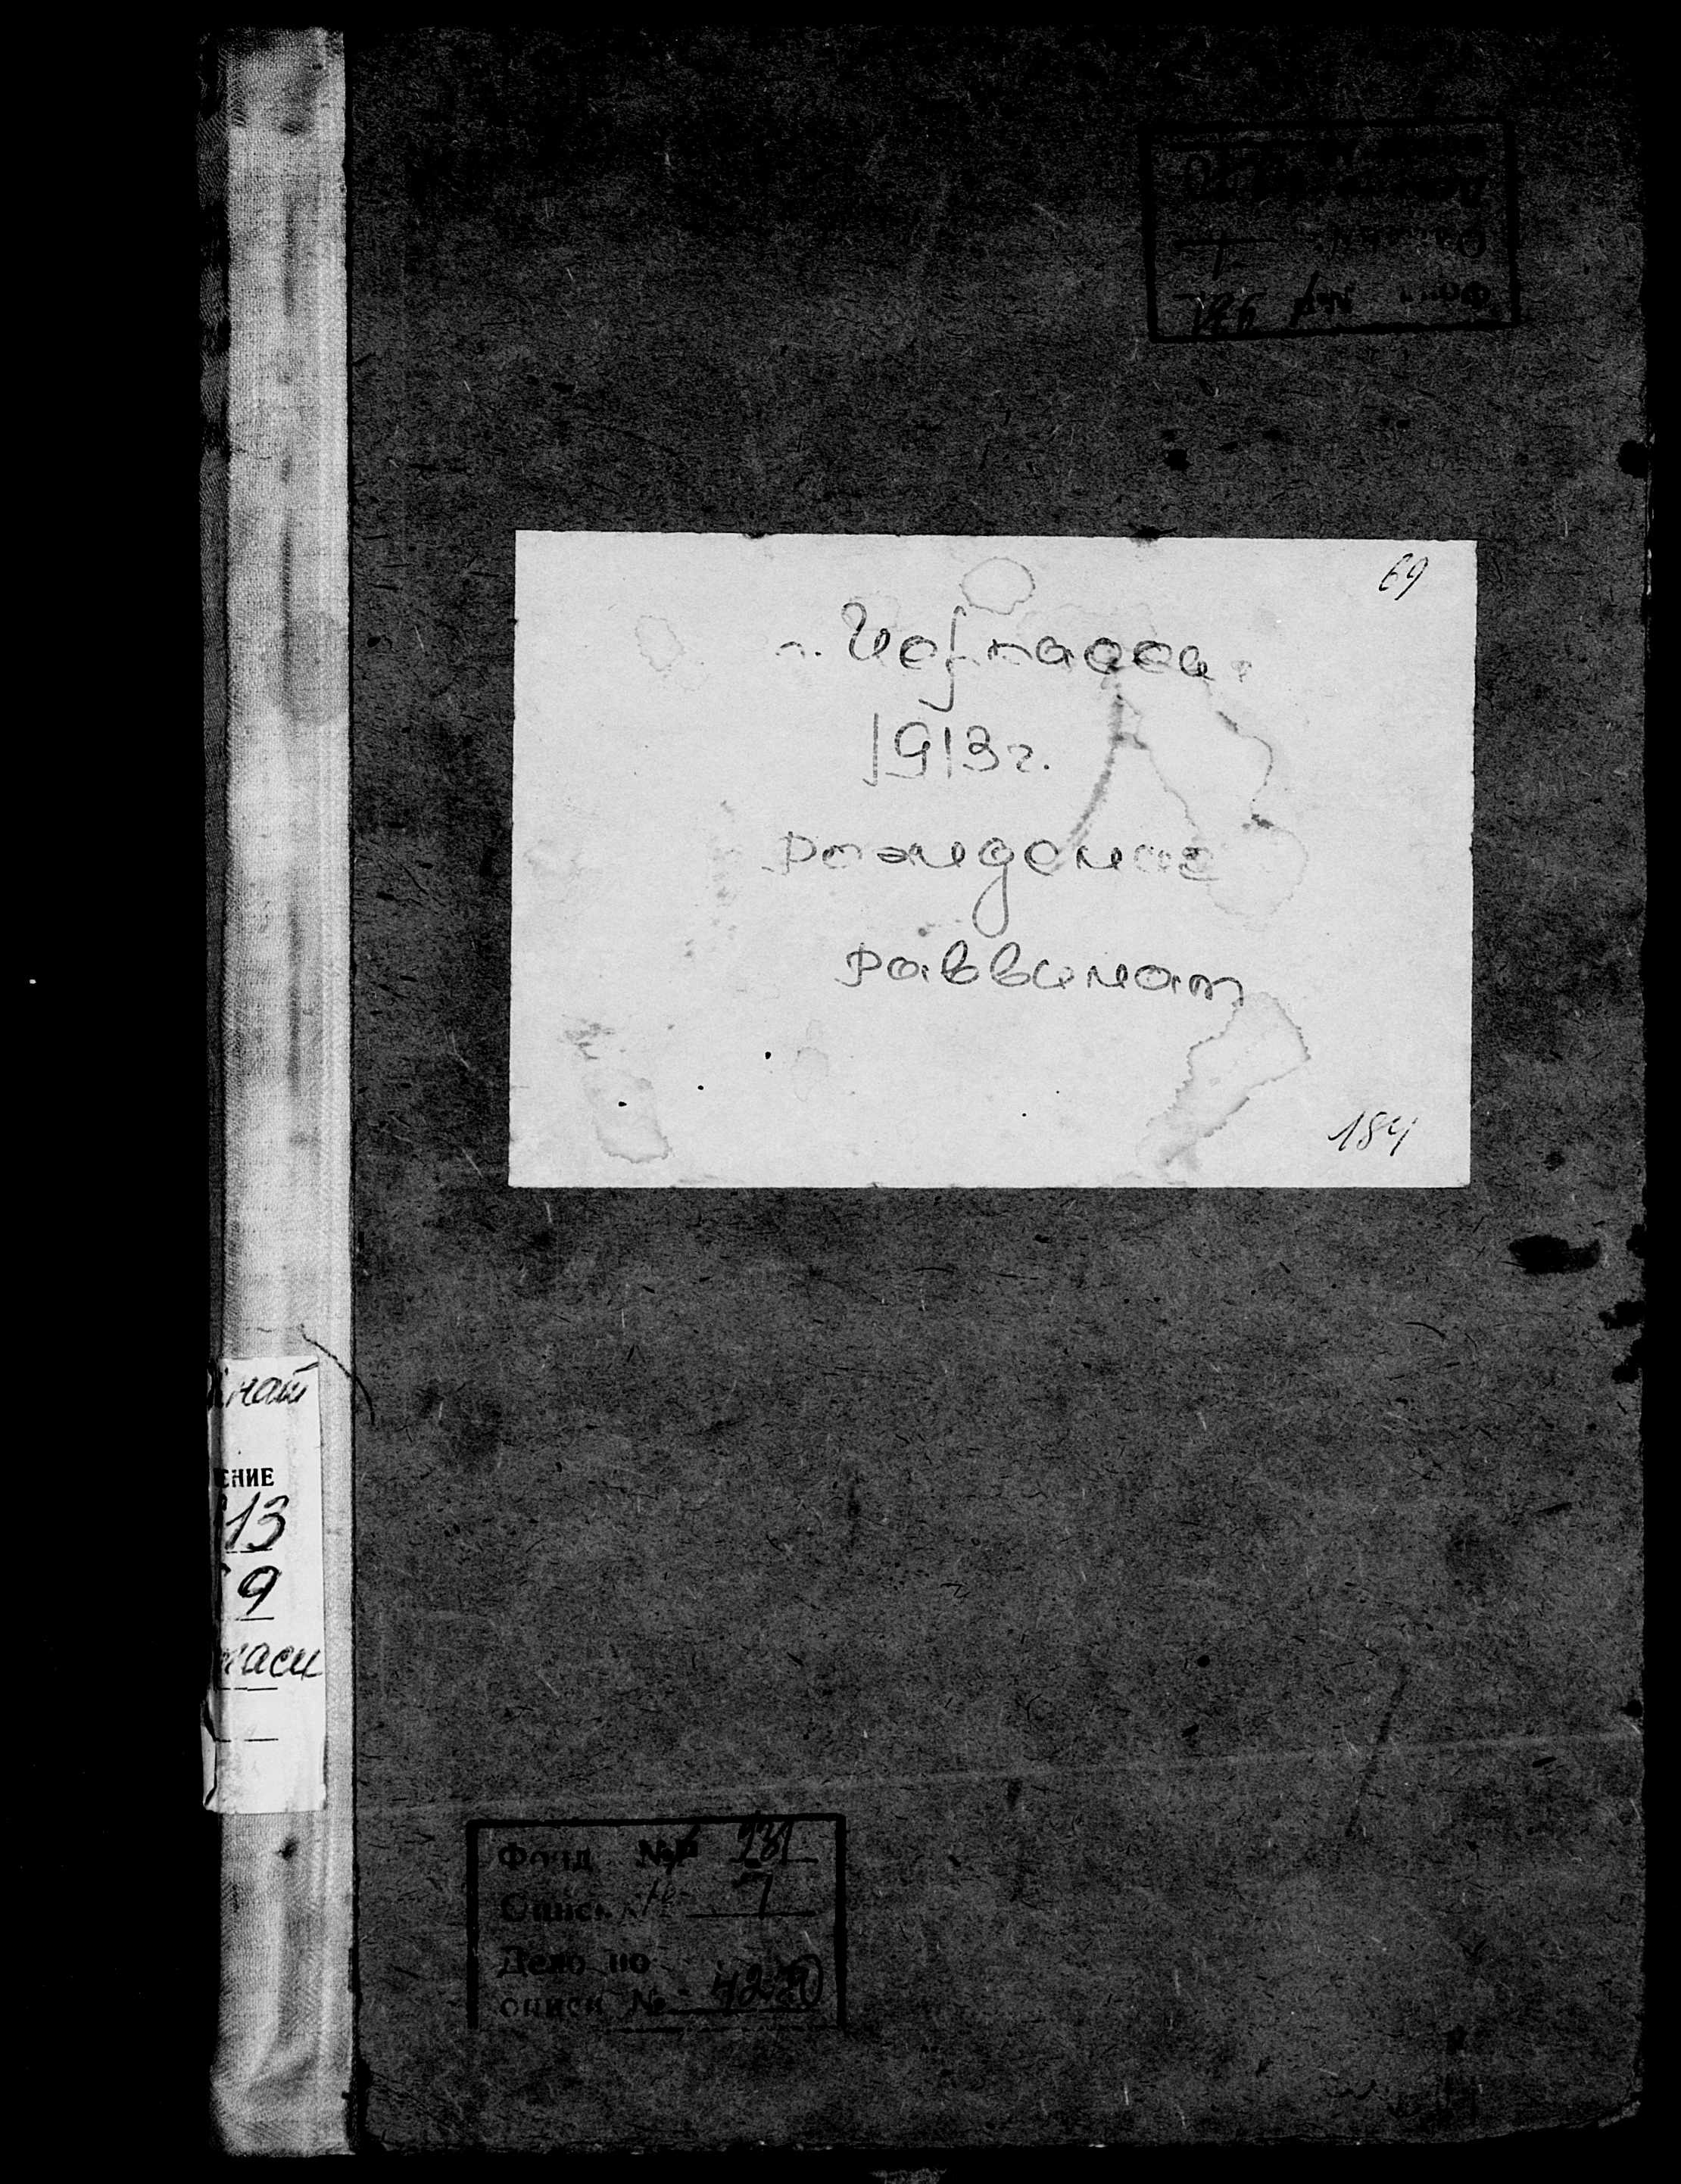 69
г. Черкассы.
1913 г.
рождение
раввинат
184
нат
ение
13
9
каси
Фонд № 931
Опись № 1
Дело по
описи №